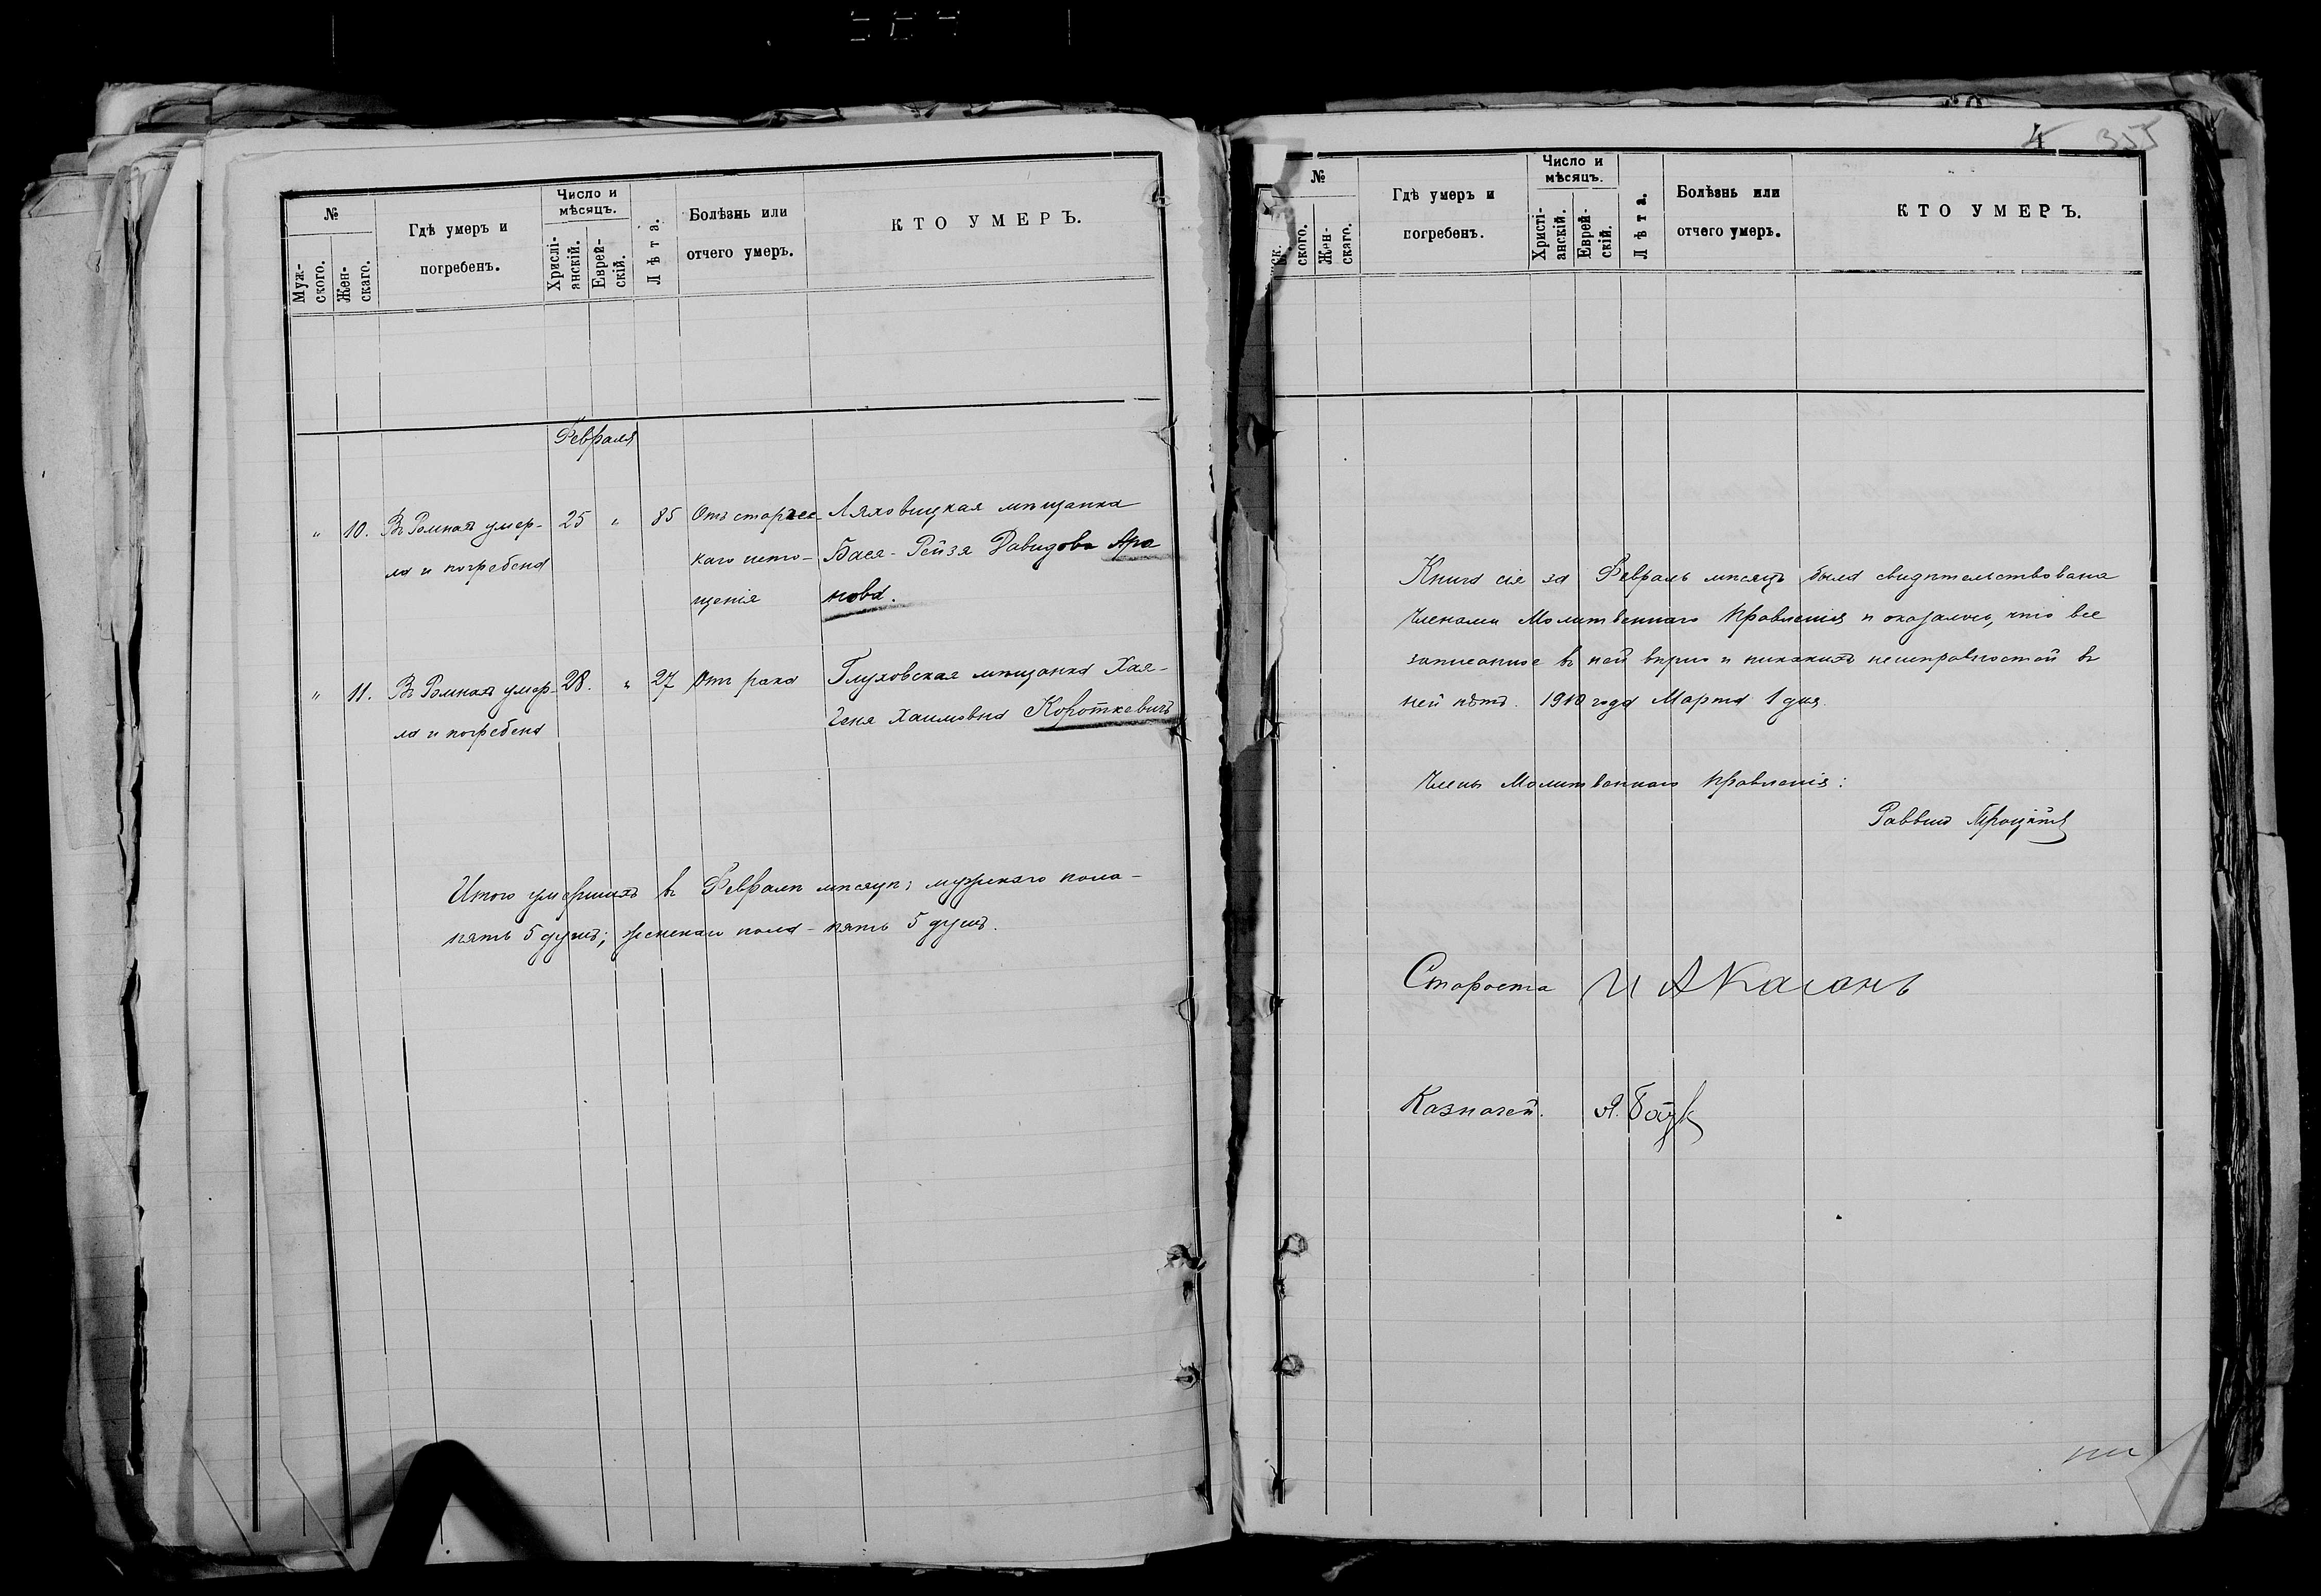 №
Муж-
ского.
Жен-
скаго.
Гдѣ умеръ и
погребенъ.
Число и
мѣсяцъ.
Хрислі-
анскій.
Еврей-
скій.
Лѣта.
Болѣзнь или
отчего умеръ.
КТО УМЕРЪ.
Февраля
" 10. Въ Ромнахъ умер- 25 " 85 Отъ старчес- Ляховицкая мѣщанка
ла и погребена каго исто- Бася-Рейза Давидова Аро
щенія нова.
" 11. Въ Ромнахъ умер- 28. " 27 Отъ рака Глуховская мѣщанка Хая-
ла и погребена Геня Хаимовна Короткевичъ
Итого умершихъ въ Февралѣ мѣсяцѣ; мужскаго пола-
пять 5 душъ; женскаго пола - пять 5 душъ.
4 355
№
ского.
Жен-
скаго.
Гдѣ умеръ и
погребенъ.
Число и
мѣсяцъ.
Христі-
анскій.
Еврей-
скій.
Лѣта.
Болѣзнь или
отчего умеръ.
КТО УМЕРЪ.
Книга сія за Февраль мѣсяцъ была свидѣтельствована
Членами Молитвеннаго Правленія и оказалось, что все
записанное въ ней вѣрно и никакихъ неисправностей въ
ней нѣтъ. 1910 года Марта 1 дня.
Члены Молитвеннаго Правленія:
Раввинъ
Староста И А Каганъ
Казначей. Я.